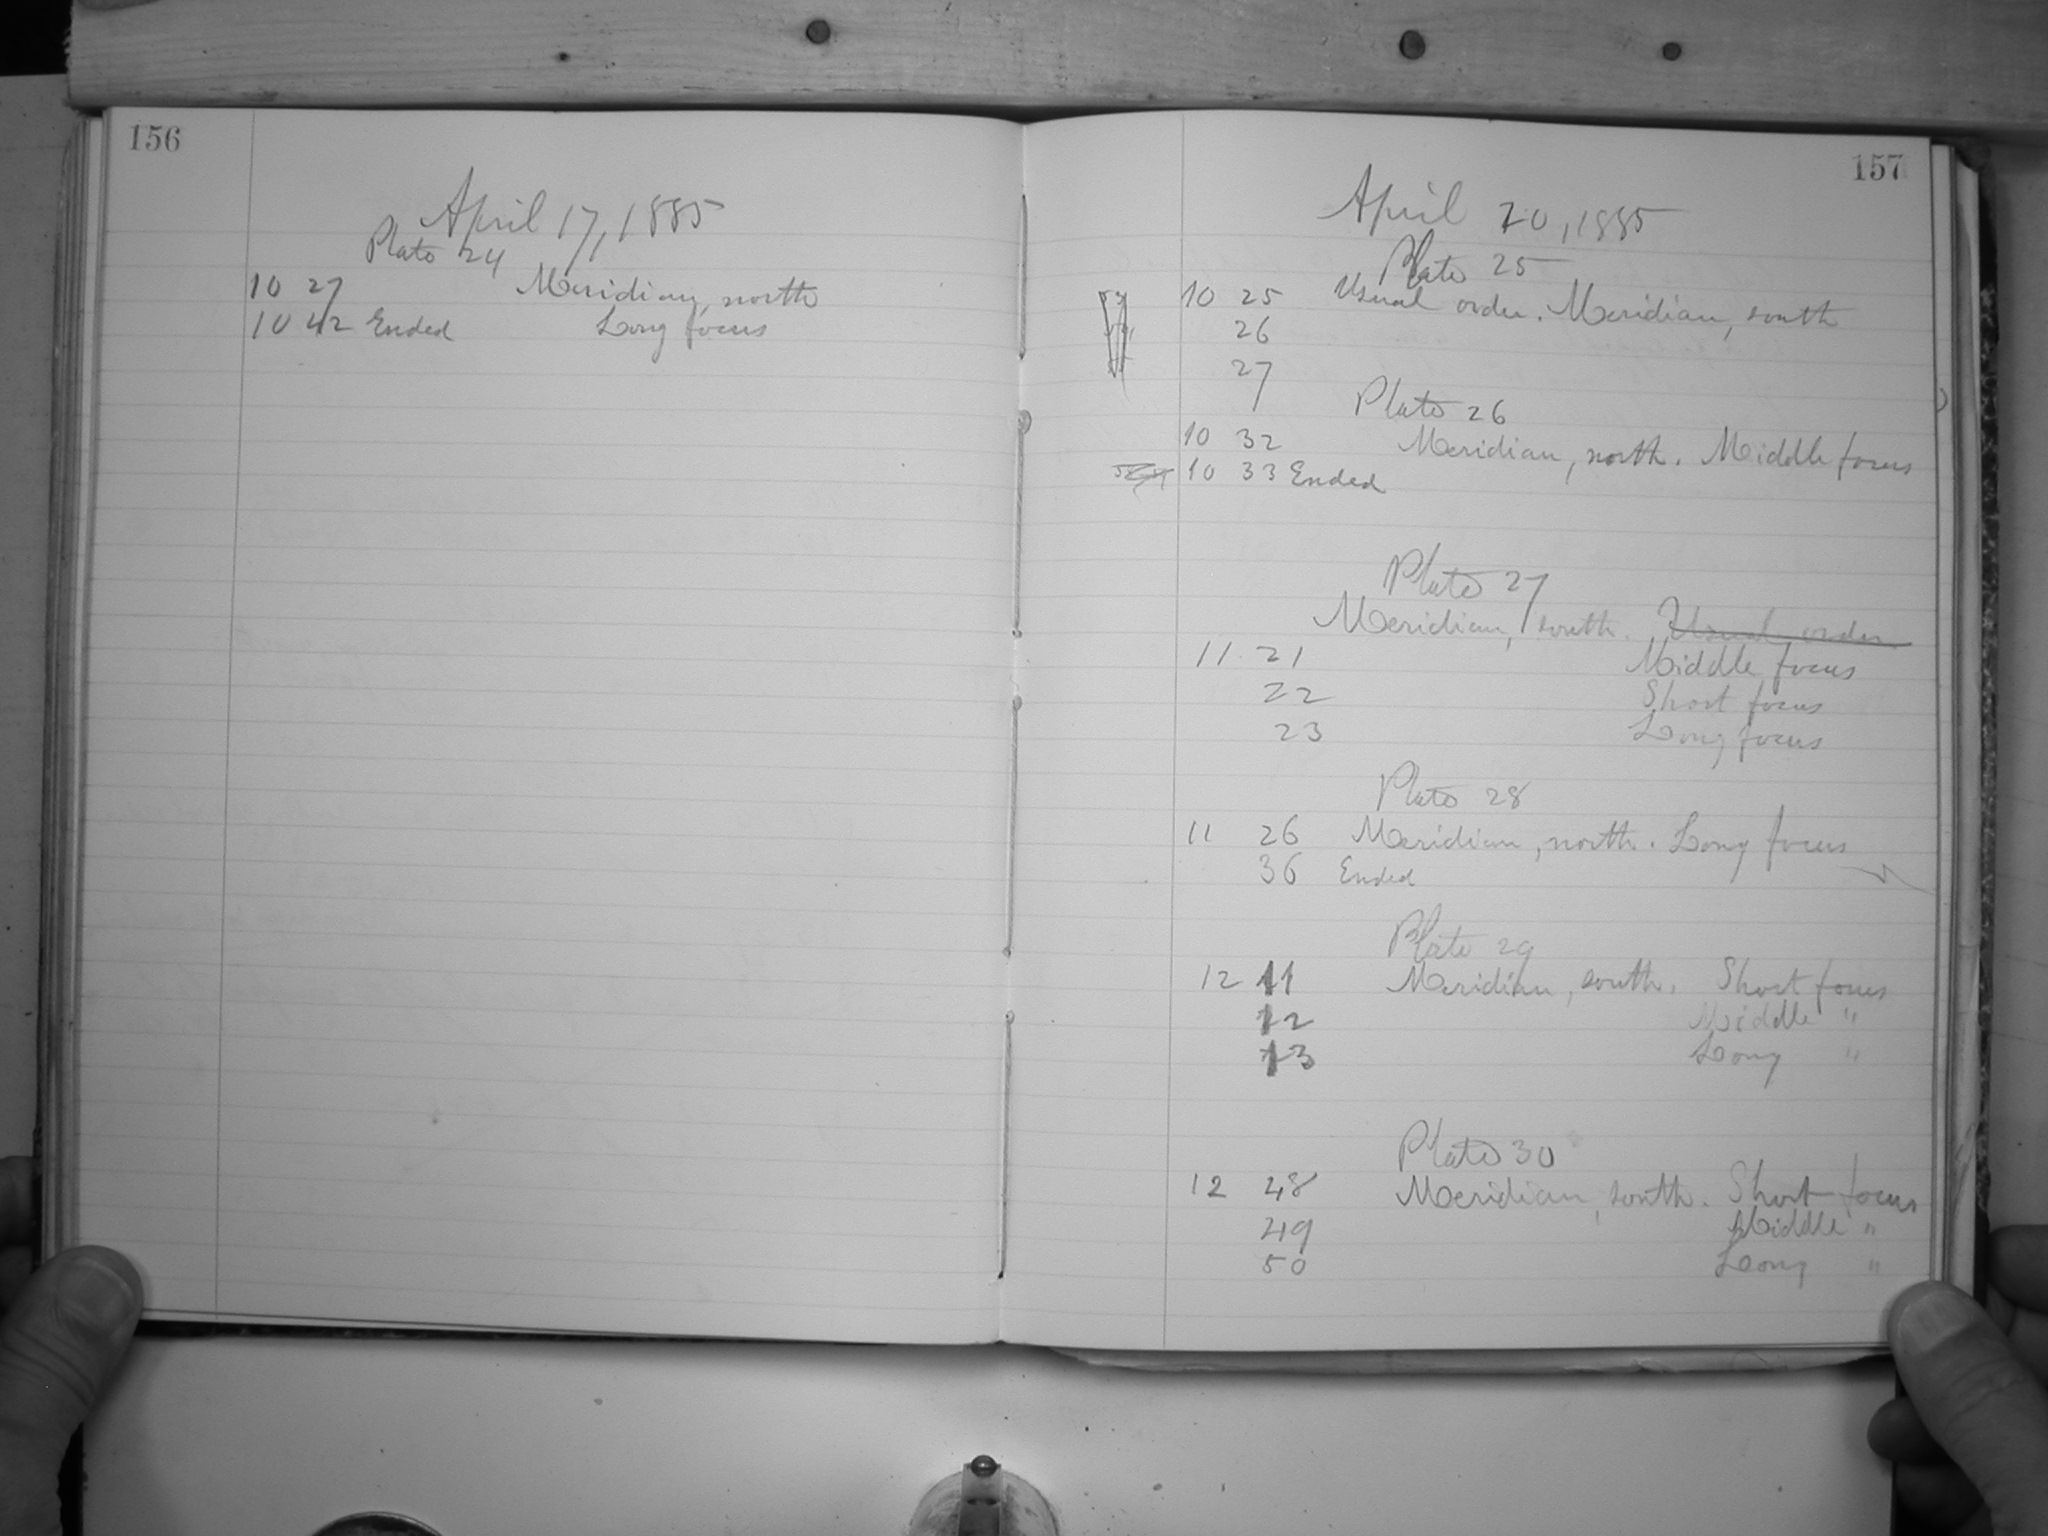 156
April 17, 1885
Plate 24
10 27 Meridian, north
10 42 Ended Long focus
157
April 20, 1885
Plate 25
10 25 Usual order. Meridian, south
26
27
Plate 26
10 32 Meridian, north. Middle focus
10 33 Ended
Plate 27
Meridian, south. Usual order
11 21 Middle focus
22 Short focus
23 Long focus
Plate 28
11 26 Meridian, north. Long focus
36 Ended
Plate 29
12 11 Meridian, south. Short focus
12 Middle "
13 Long "
Plate 30
12 48 Meridian, south. Short focus
49 Middle "
50 Long "